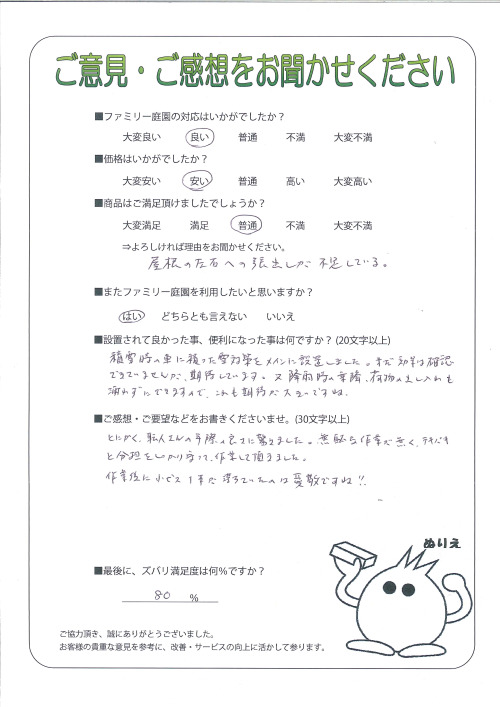 ご意見・ご感想をお聞かせください
■ファミリー庭園の対応はいかがでしたか？
大変良い 良い 普通 不満 大変不満
■価格はいかがでしたか？
大変安い 安い 普通 高い 大変高い
■商品はご満足頂けましたでしょうか？
大変満足 満足 普通 不満 大変不満
⇒よろしければ理由をお聞かせください。
屋根の左右への張出しが不足している。
■またファミリー庭園を利用したいと思いますか？
はい どちらとも言えない いいえ
■設置されて良かった事、便利になった事は何ですか？(20文字以上)
積雪時の車に積った雪対策をメインに設置しました。まだ効果は確認
できていませんが、期待しています。又降雨時の乗降、荷物の出し入れも
濡れずにできますので、これも期待が大きいですね。
■ご感想・ご要望などをお書きくださいませ。(30文字以上)
とにかく、職人さんの手際の良さに驚きました。無駄な作業が無く、テキパキ
と分担をしっかり守って、作業して頂きました。
作業後に小ビス1本が落ちていたのは愛敬ですね!!
ぬりえ
■最後に、ズバリ満足度は何%ですか？
80 %
ご協力頂き、誠にありがとうございました。
お客様の貴重な意見を参考に、改善・サービスの向上に活かして参ります。